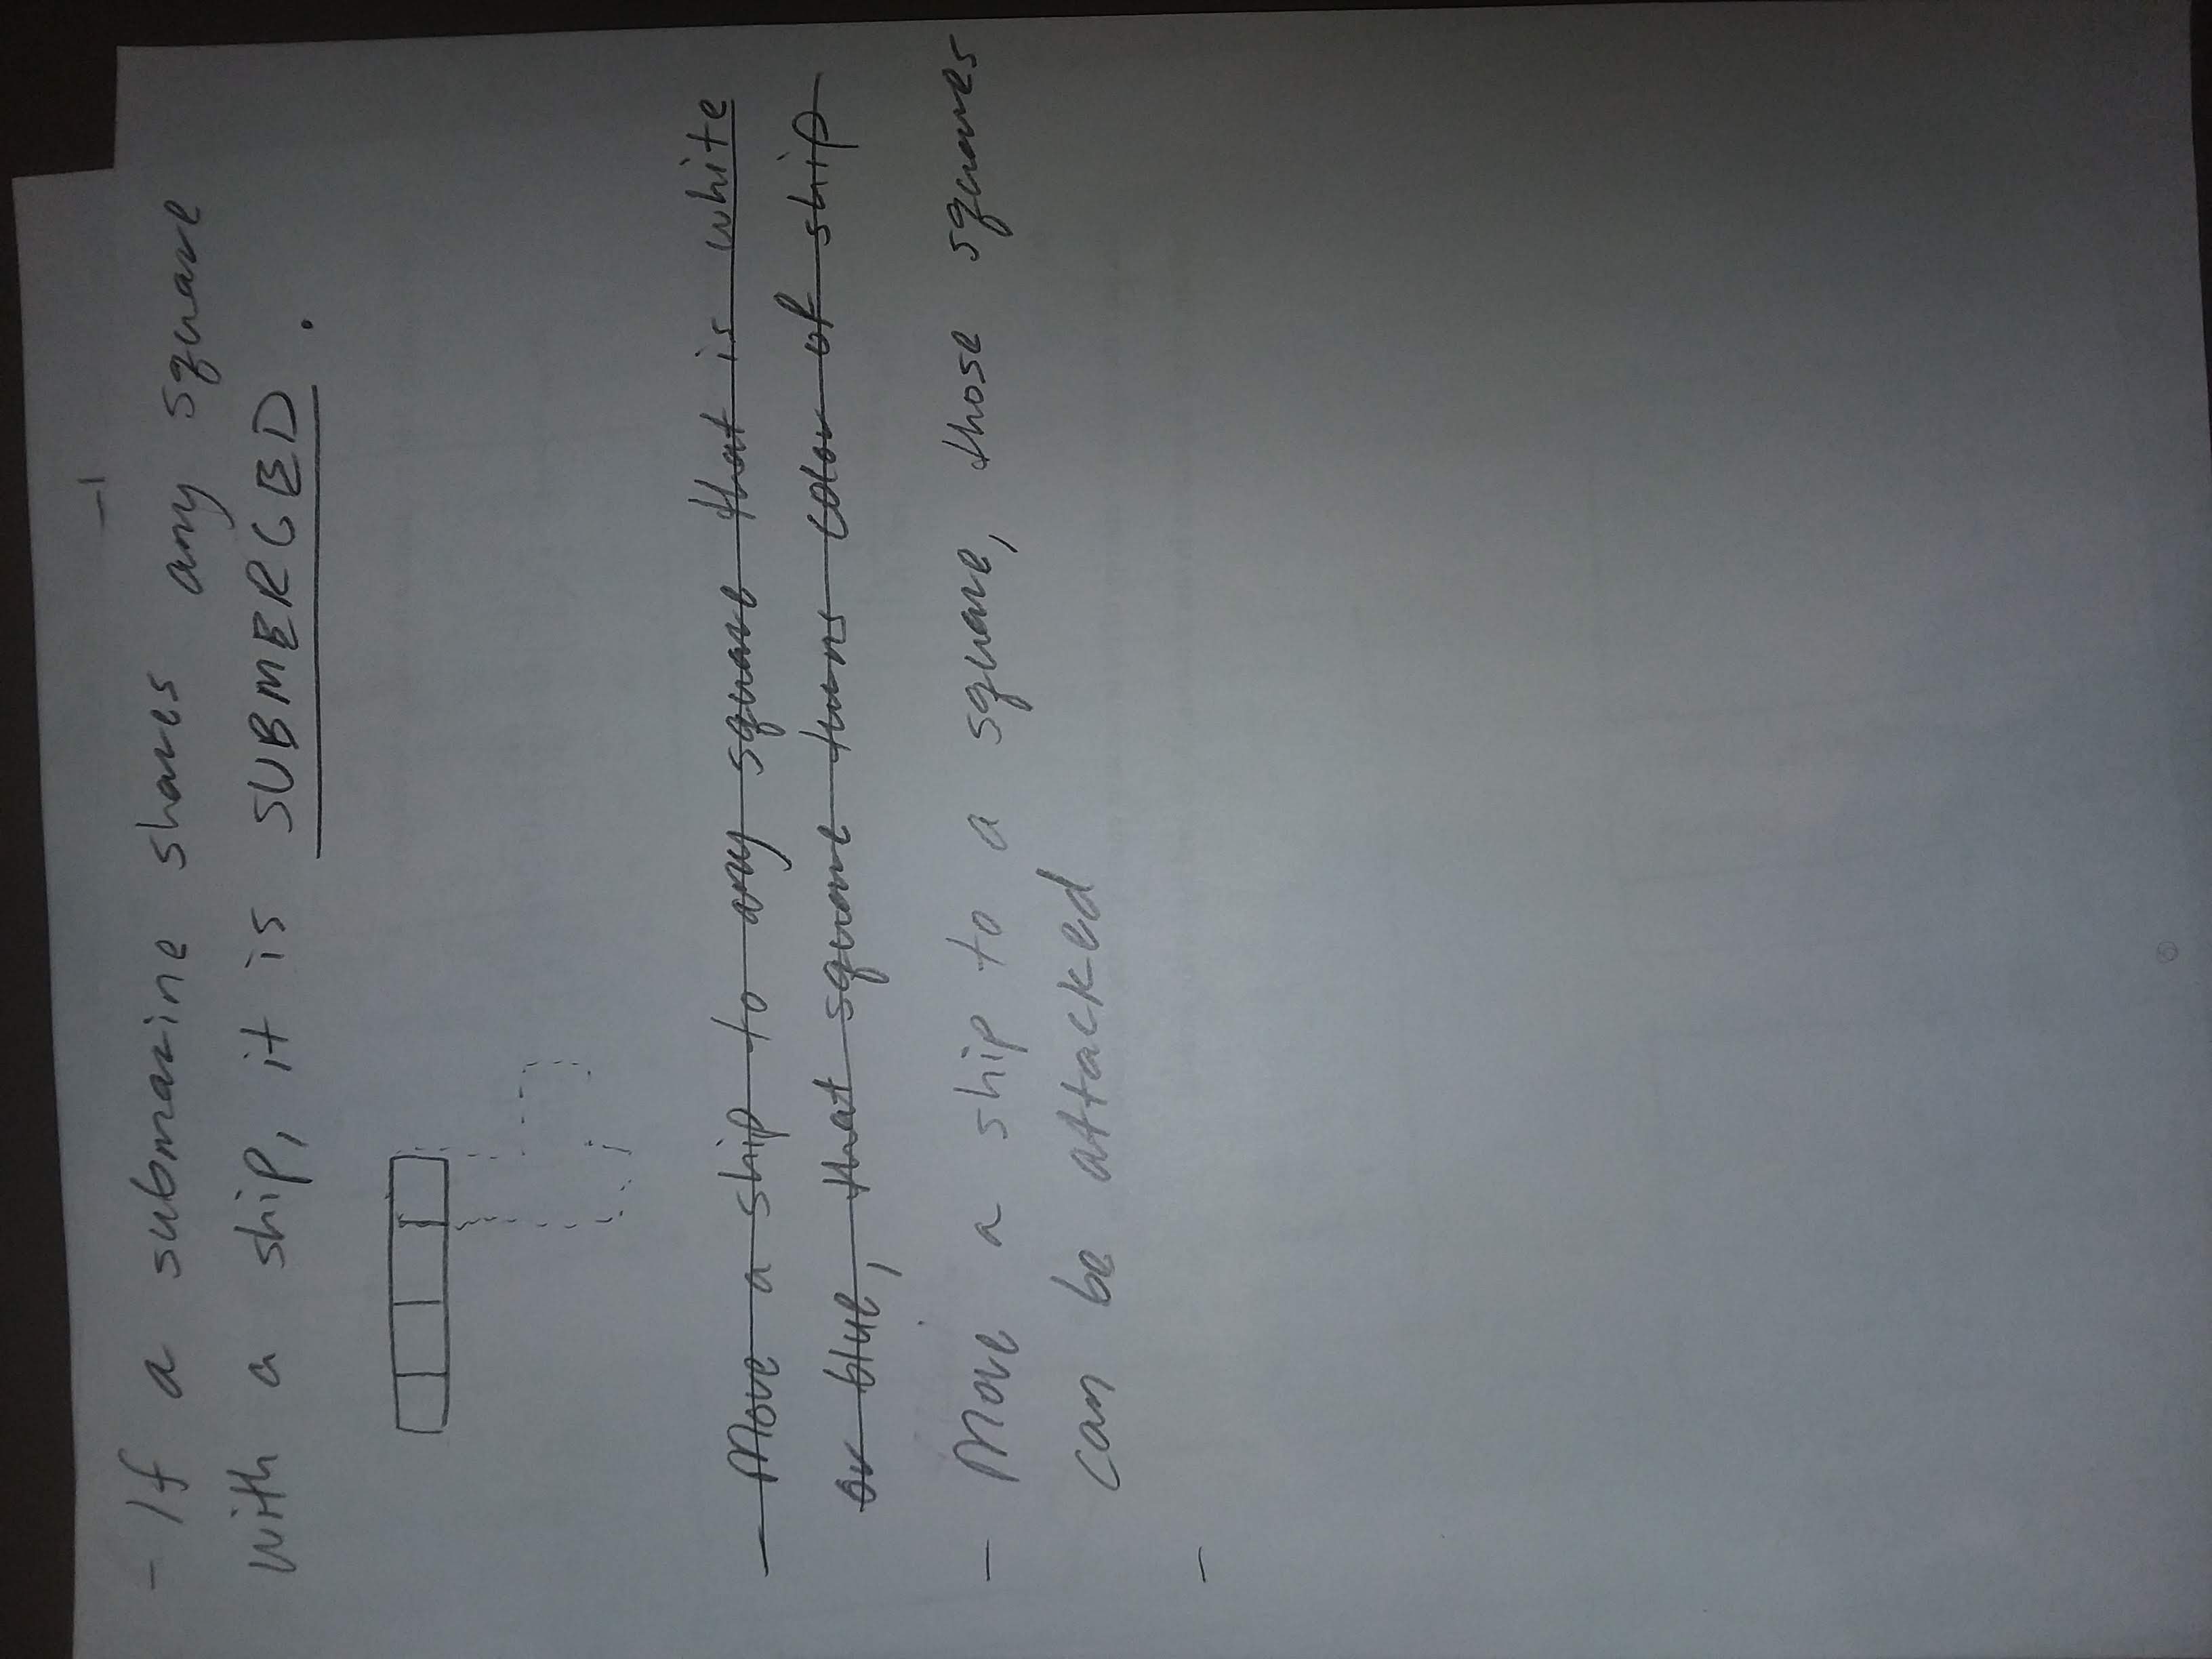 -1
- If a submarine shares any square
with a ship, it is SUBMERGED.
- Move a ship to any square that is white
or blue, that square turns color of ship
- Move a ship to a square, those squares
can be attacked
-